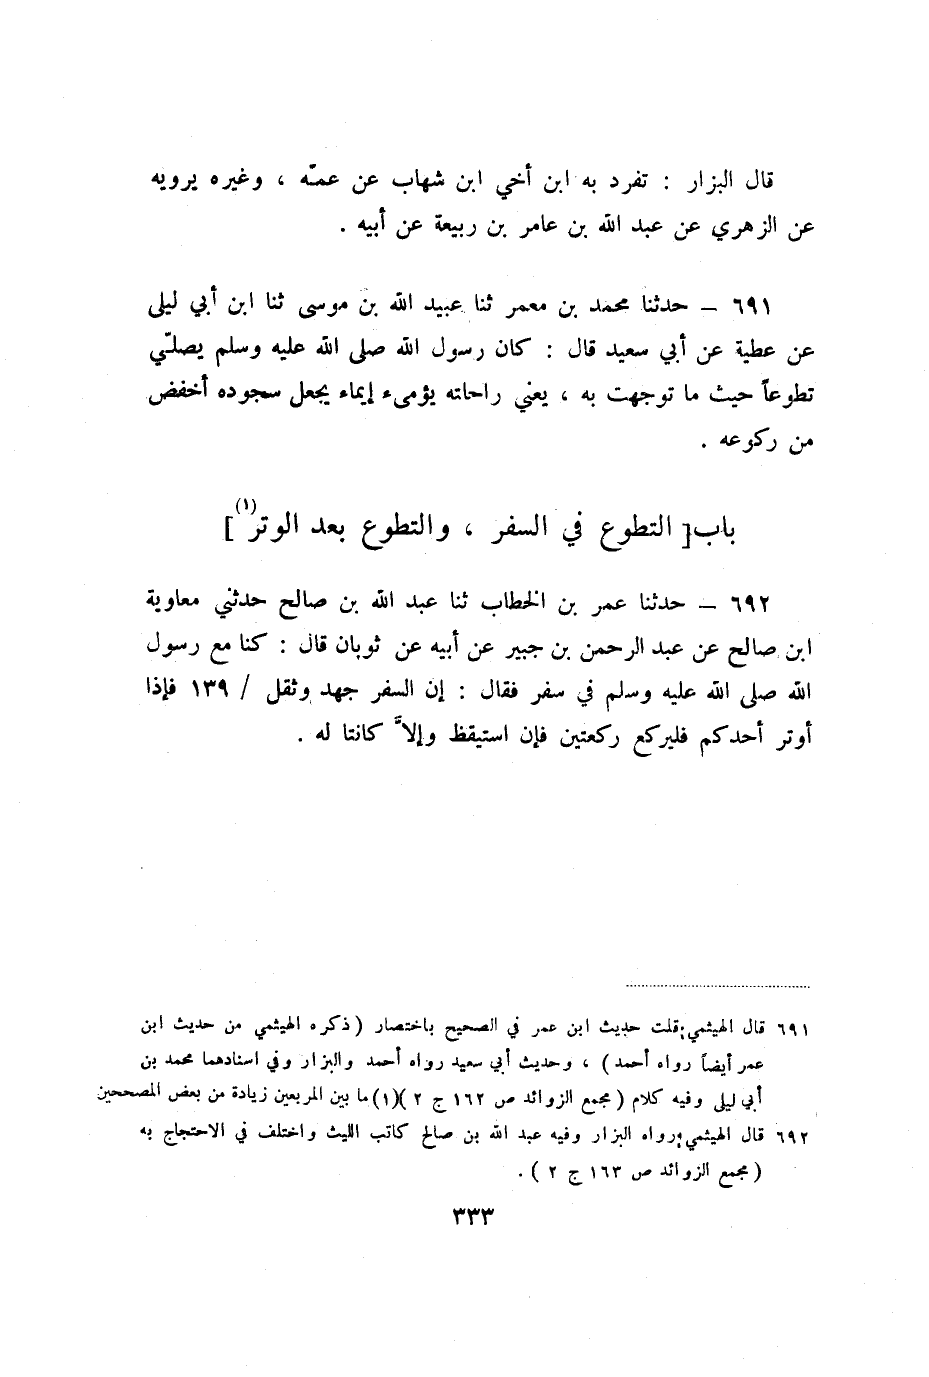 قال البزار : تفرد به ابن أخي ابن شهاب عن عمّه ، وغيره يرويه
عن الزهري عن عبد الله بن عامر بن ربيعة عن أبيه .
٦٩١ – حدثنا محمد بن معمر ثنا عبيد الله بن موسى ثنا ابن أبي ليلى
عن عطية عن أبي سعيد قال : كان رسول الله صلى الله عليه وسلم يصلّي
تطوعاً حيث ما توجهت به ، يعني راحاته يؤمىء إيماء يجعل سجوده أخفض
من ركوعه .
باب [ التطوع في السفر ، والتطوع بعد الوتر(١) ]
٦٩٢ – حدثنا عمر بن الخطاب ثنا عبد الله بن صالح حدثني معاوية
ابن صالح عن عبد الرحمن بن جبير عن أبيه عن ثوبان قال : كنا مع رسول
الله صلى الله عليه وسلم في سفر فقال : إن السفر جهد وثقل / ١٣٩ فإذا
أوتر أحدكم فليركع ركعتين فإن استيقظ وإلاَّ كانتا له .
٦٩١ قال الهيثمي : قلت حديث ابن عمر في الصحيح باختصار (ذكره الهيثمي من حديث ابن
عمر أيضاً رواه أحمد ) ، وحديث أبي سعيد رواه أحمد والبزار وفي اسنادهما محمد بن
أبي ليلى وفيه كلام ( مجمع الزوائد ص ١٦٢ ج ٢ )(١) ما بين المربعين زيادة من بعض المصححين
٦٩٢ قال الهيثمي : رواه البزار وفيه عبد الله بن صالح كاتب الليث واختلف في الاحتجاج به
( مجمع الزوائد ص ١٦٣ ج ٢ ) .
٣٣٣